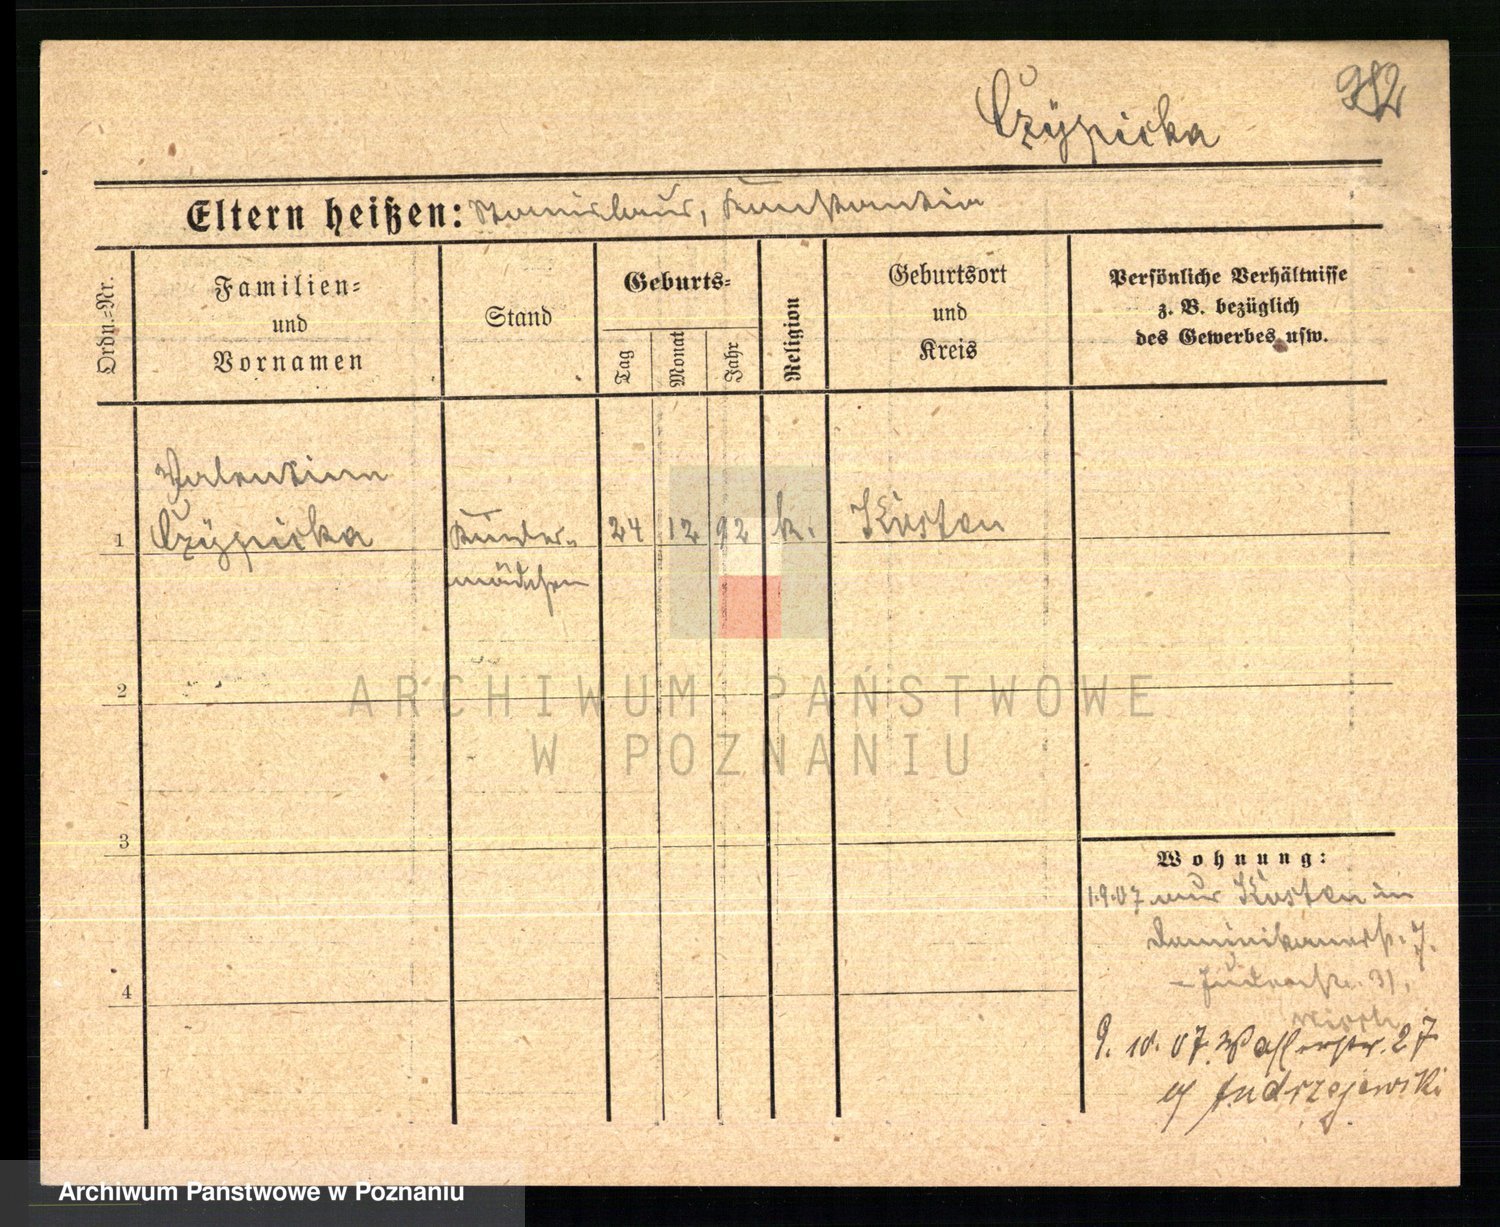 982
Czÿpicka
Eltern heißen: Stanislaus, Konstantia
Ordn.-Nr.
Familien-
und
Vornamen
Stand
Geburts-
Tag
Monat
Jahr
Religion
Geburtsort
und
Kreis
Persönliche Verhältnisse
z. B. bezüglich
des Gewerbes usw.
Valentine
1 Czÿpicka Kinder- 24 12 92 k. Kosten
mädchen
2
3
4
Wohnung:
1.9.07 aus Kosten in
Dominikanerstr. 7.
31,
9. 10. 07. 27
Andrzejewski
ARCHIWUM PAŃSTWOWE
W POZNANIU
Archiwum Państwowe w Poznaniu